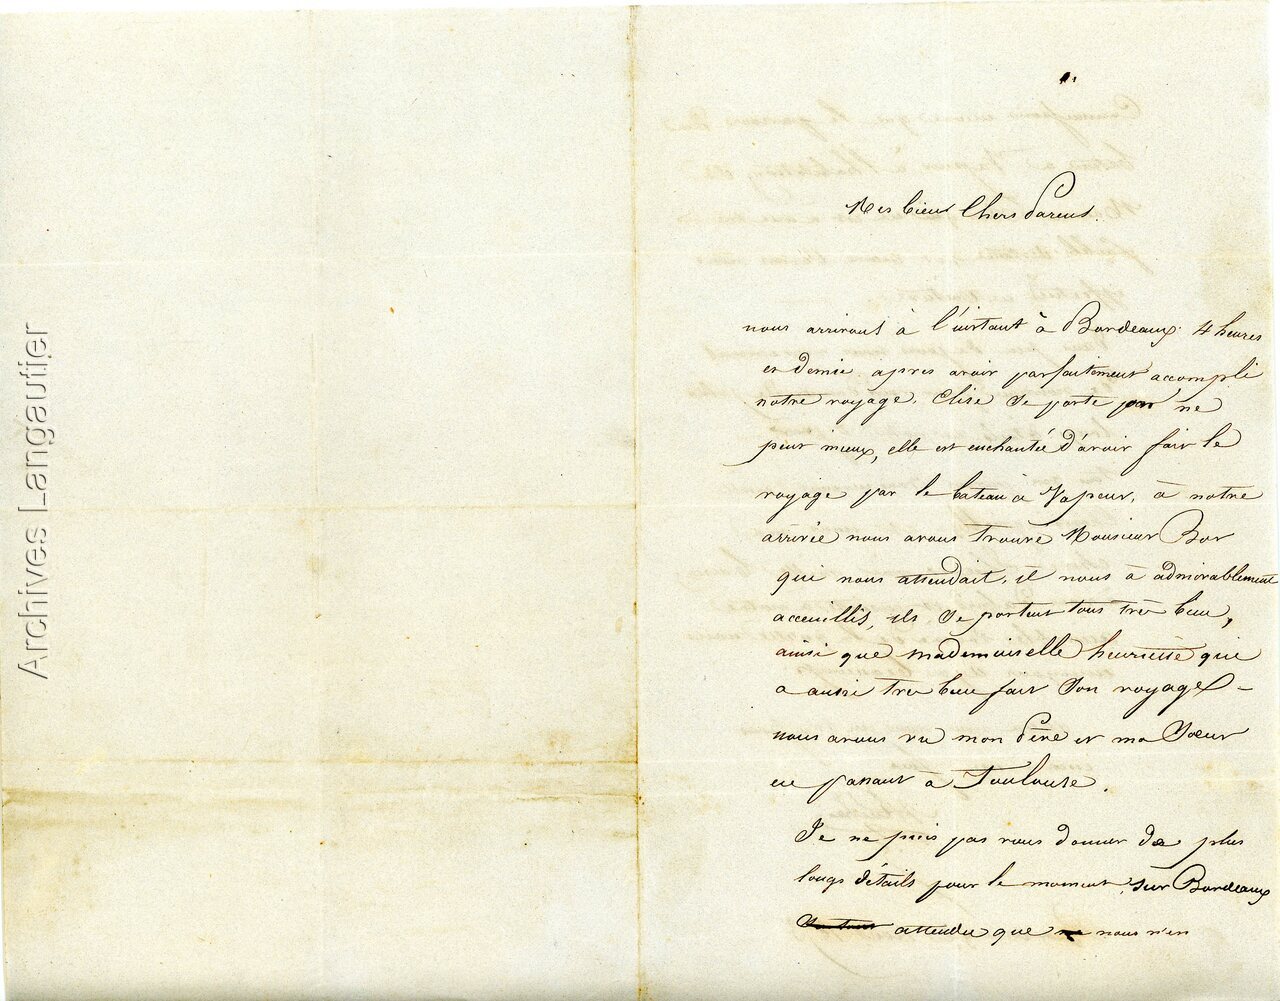 Archives Langautier
Mes bien Chers Parens.
nous arrivons à l'instant à Bordeaux. 4 heures
et demie. après avoir parfaitement accompli
notre voyage. Elise se porte on ne
peut mieux, elle est enchantée d'avoir fait le
voyage par le bateau à Vapeur, à notre
arrivée nous avons trouvé Monsieur Bor
qui nous attendait, il nous à admirablement
acceuillis, ils se portent tous très bien,
ainsi que mademoiselle henriette qui
a aussi très bien fait son voyage -
nous avons vu mon Père et ma Soeur
en passant à Toulouse.
Je ne puis pas vous donner de plus
longs détails pour le moment, sur Bordeaux
attendu que nous n'en